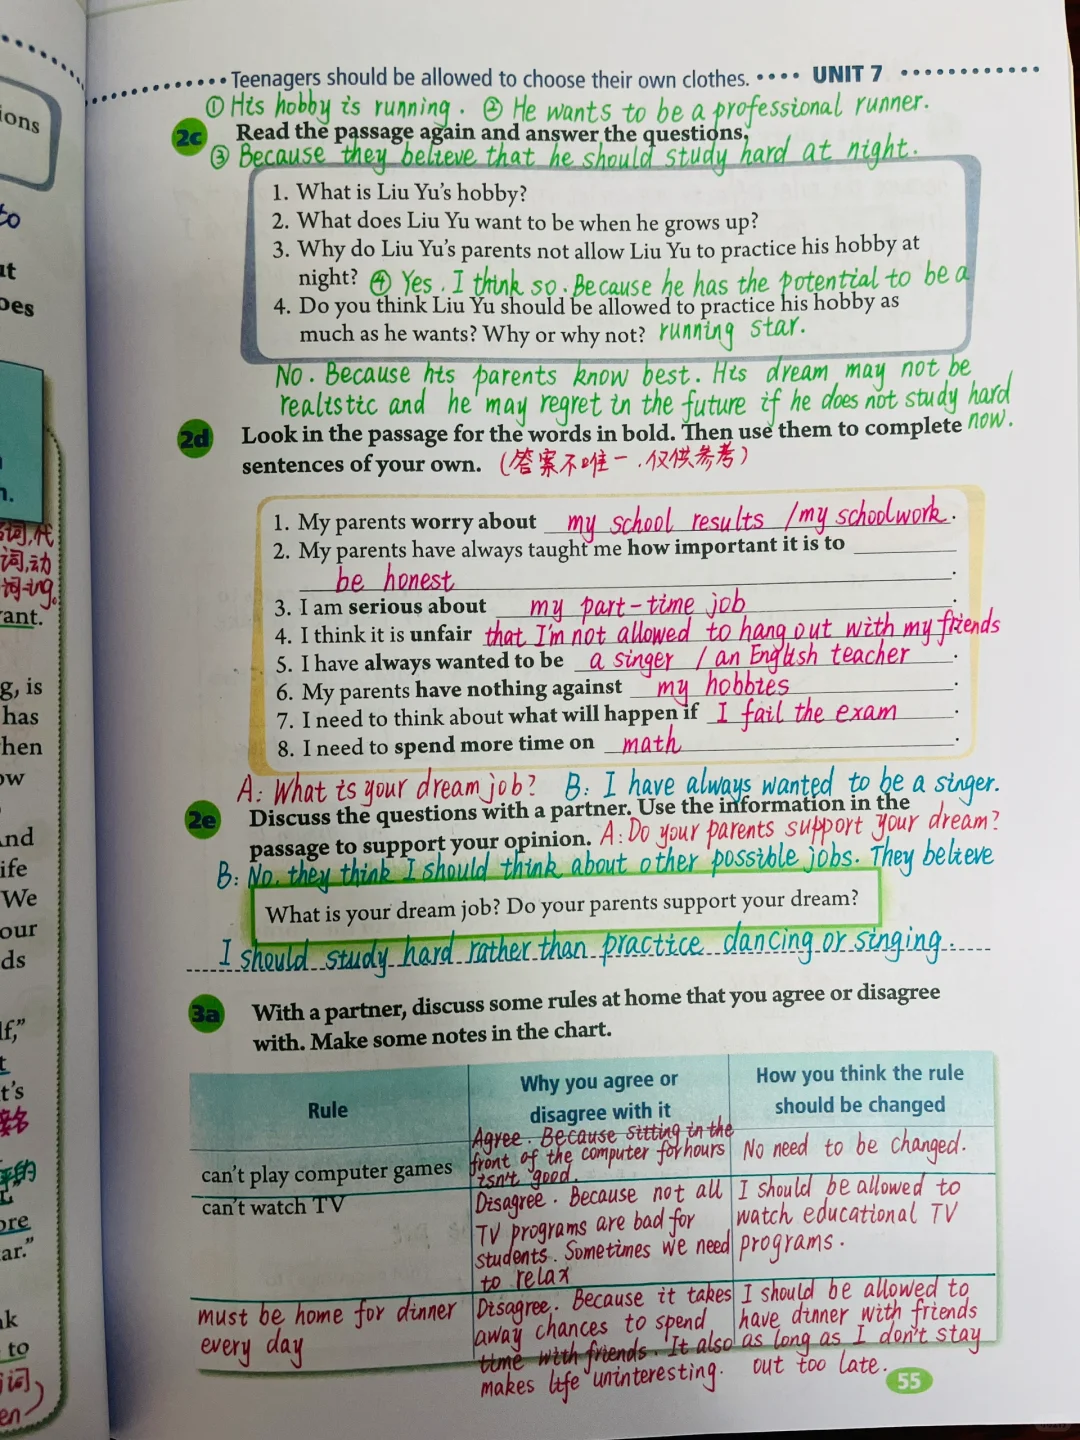 Teenagers should be allowed to choose their own clothes. UNIT 7
① His hobby is running. ② He wants to be a professional runner.
2c Read the passage again and answer the questions.
③ Because they believe that he should study hard at night.
1. What is Liu Yu's hobby?
2. What does Liu Yu want to be when he grows up?
3. Why do Liu Yu's parents not allow Liu Yu to practice his hobby at
night? ④ Yes. I think so. Because he has the potential to be a
4. Do you think Liu Yu should be allowed to practice his hobby as
much as he wants? Why or why not? running star.
No. Because his parents know best. His dream may not be
realistic and he may regret in the future if he does not study hard
now.
2d Look in the passage for the words in bold. Then use them to complete
sentences of your own. (答案不唯一.仅供参考)
1. My parents worry about my school results /my schoolwork.
2. My parents have always taught me how important it is to
be honest.
3. I am serious about my part-time job.
4. I think it is unfair that I'm not allowed to hang out with my friends
5. I have always wanted to be a singer / an English teacher.
6. My parents have nothing against my hobbies.
7. I need to think about what will happen if I fail the exam.
8. I need to spend more time on math.
A: What is your dream job? B: I have always wanted to be a singer.
2e Discuss the questions with a partner. Use the information in the
passage to support your opinion. A: Do your parents support your dream?
B: No, they think I should think about other possible jobs. They believe
What is your dream job? Do your parents support your dream?
I should study hard rather than practice dancing or singing.
3a With a partner, discuss some rules at home that you agree or disagree
with. Make some notes in the chart.
Rule
Why you agree or
disagree with it
How you think the rule
should be changed
can't play computer games
Agree. Because sitting in the
front of the computer for hours
isn't good.
No need to be changed.
can't watch TV
Disagree. Because not all
TV programs are bad for
students. Sometimes we need
to relax
I should be allowed to
watch educational TV
programs.
must be home for dinner
every day
Disagree. Because it takes
away chances to spend
time with friends. It also
makes life uninteresting.
I should be allowed to
have dinner with friends
as long as I don't stay
out too late.
55
ions
to
ant.
g, is
has
hen
ow
And
ife
We
our
ds
lf,"
t's
ore
ar."
k
to